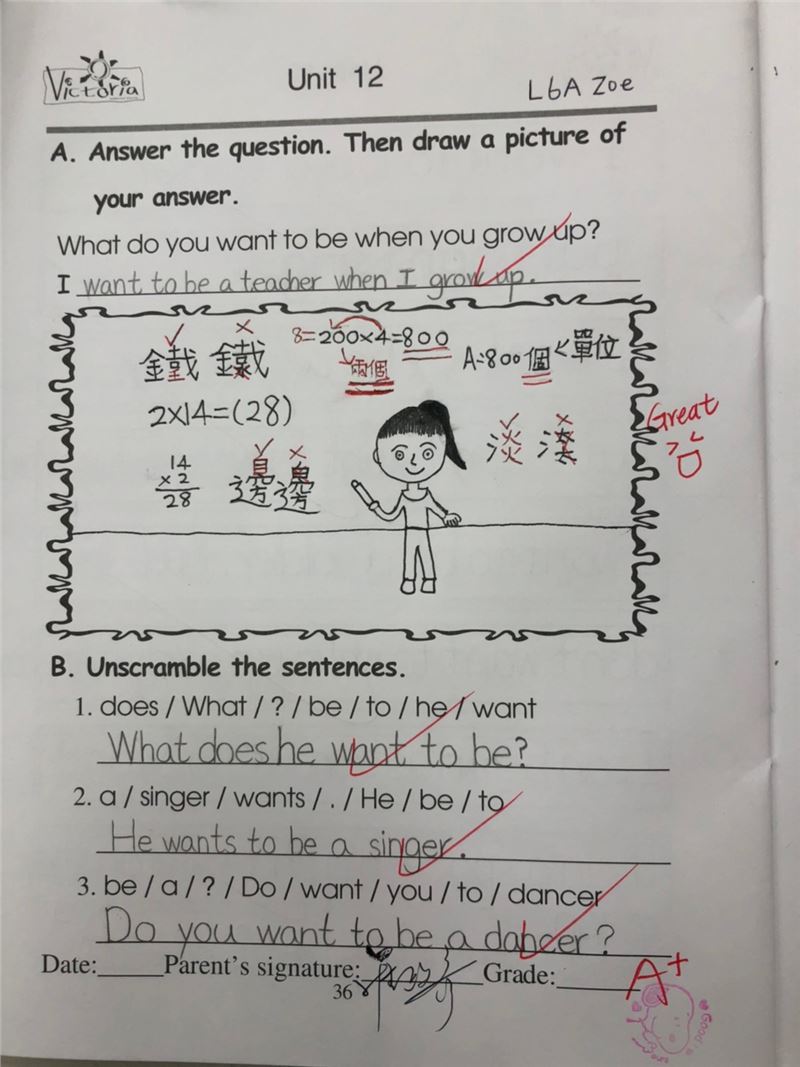 Victoria
Unit 12
L6A Zoe
A. Answer the question. Then draw a picture of
your answer.
What do you want to be when you grow up?
I want to be a teacher when I grow up.
8=200×4=800
兩個
A:800個<單位
2×14=(28)
淡
14
×2
28
邊
Great
B. Unscramble the sentences.
1. does / What / ? / be / to / he / want
What does he want to be?
2. a / singer / wants / . / He / be / to
He wants to be a singer.
3. be / a / ? / Do / want / you / to / dancer
Do you want to be a dancer?
Date: Parent's signature: Grade: A+
36
Good